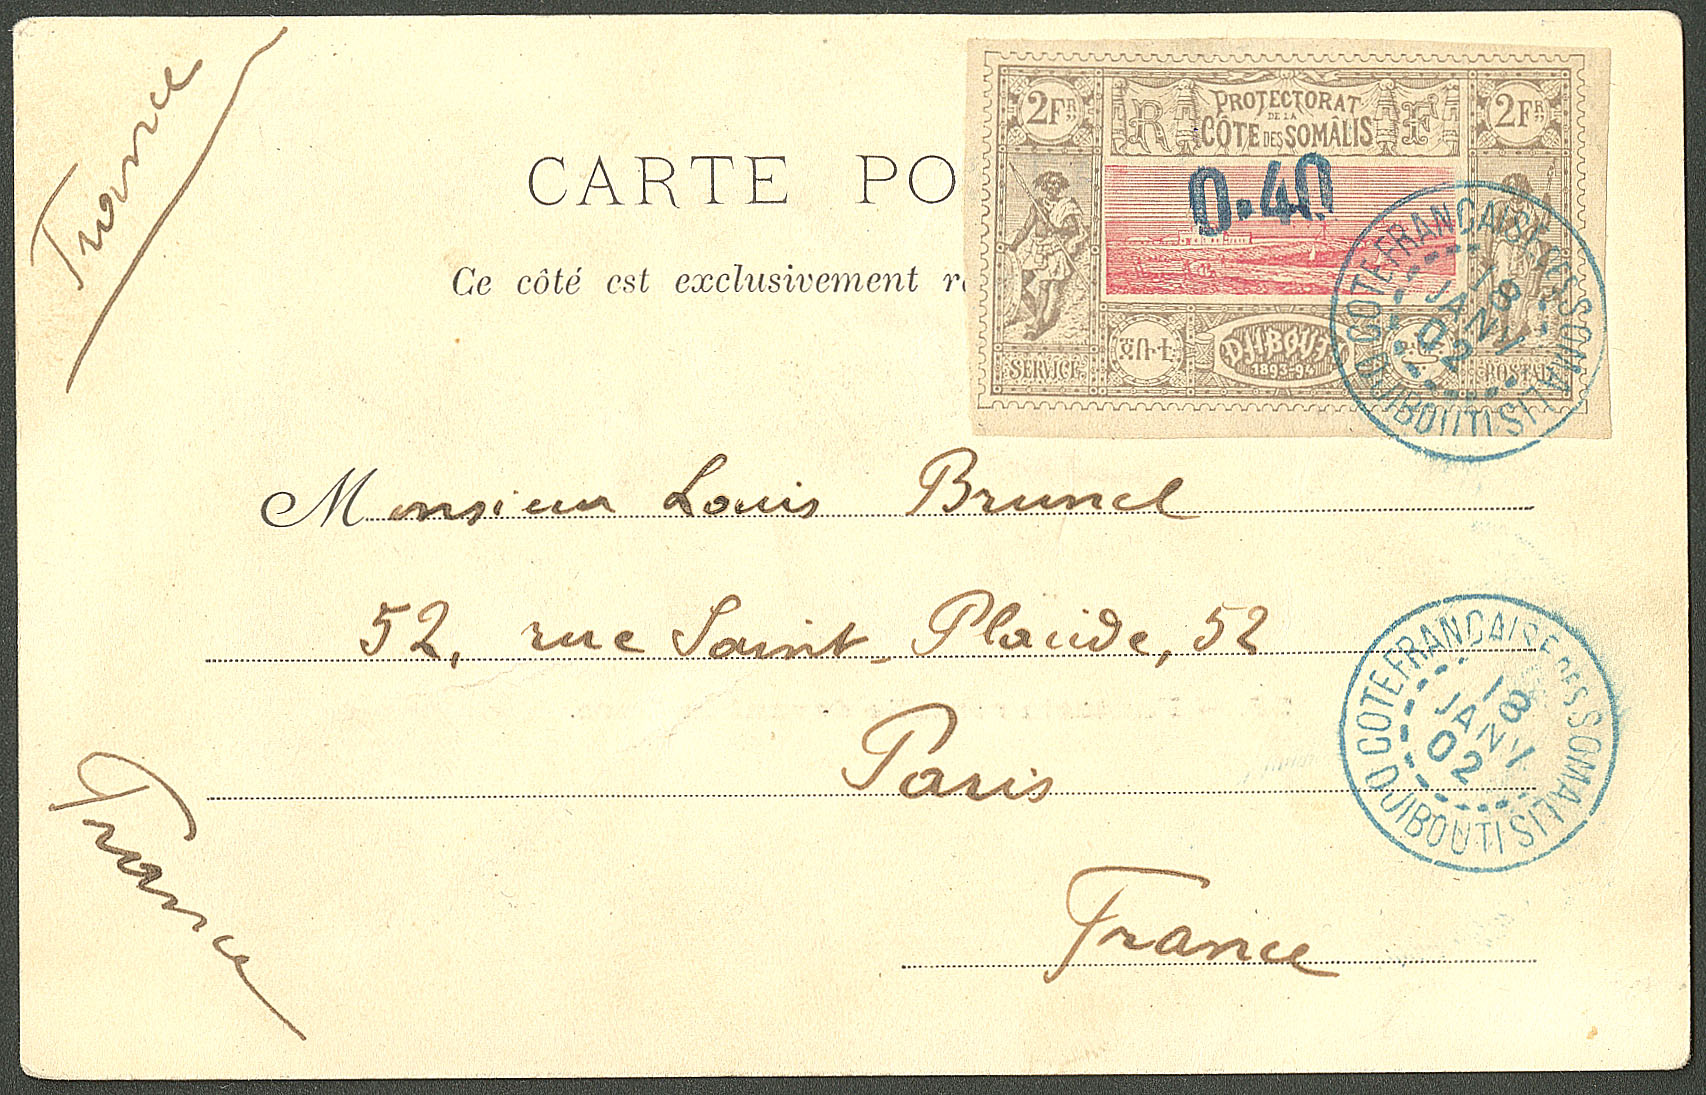 France
CARTE PO
Ce côté est exclusivement r
2 Fr
R
PROTECTORAT
DE LA
CÔTE DES SOMÂLIS
F
2 Fr
0.40
SERVICE
DJIBOUTI
1893-94
POSTAL
COTE FRANÇAISE DES SOMALIS
18
JANV
02
DJIBOUTI
Monsieur Louis Brunel
52, rue Saint-Placide, 52
Paris
France
France
COTE FRANÇAISE DES SOMALIS
18
JANV
02
DJIBOUTI